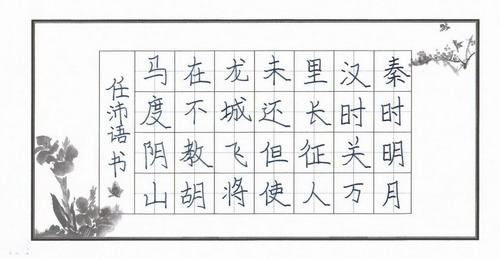 秦时明月
汉时关万
里长征人
未还但使
龙城飞将
在不教胡
马度阴山
任沛语书